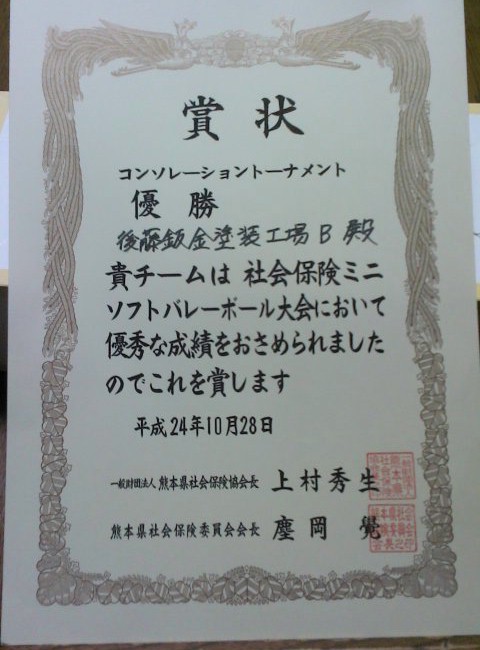 賞状
コンソレーショントーナメント
優勝
後藤鈑金塗装工場B殿
貴チームは 社会保険ミニ
ソフトバレーボール大会において
優秀な成績をおさめられました
のでこれを賞します
平成24年10月28日
一般財団法人 熊本県社会保険協会長 上村秀生
熊本県社会保険委員会会長 塵岡 覺